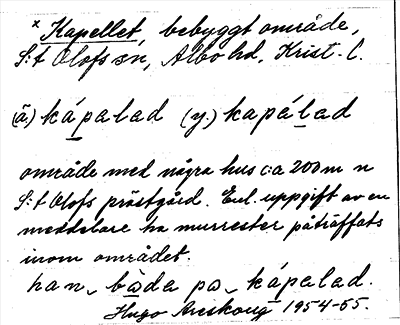 × Kapellet, bebyggt område,
S:t Olofs sn, Albo hd, Krist. l.
(ä.) kápalad (y.) kapálad
område med några hus c:a 200 m n
S:t Olofs prästgård. Enl. uppgift av en
meddelare ha murrester påträffats
inom området.
han bàda pa kápalad.
Hugo Areskoug 1954-55.